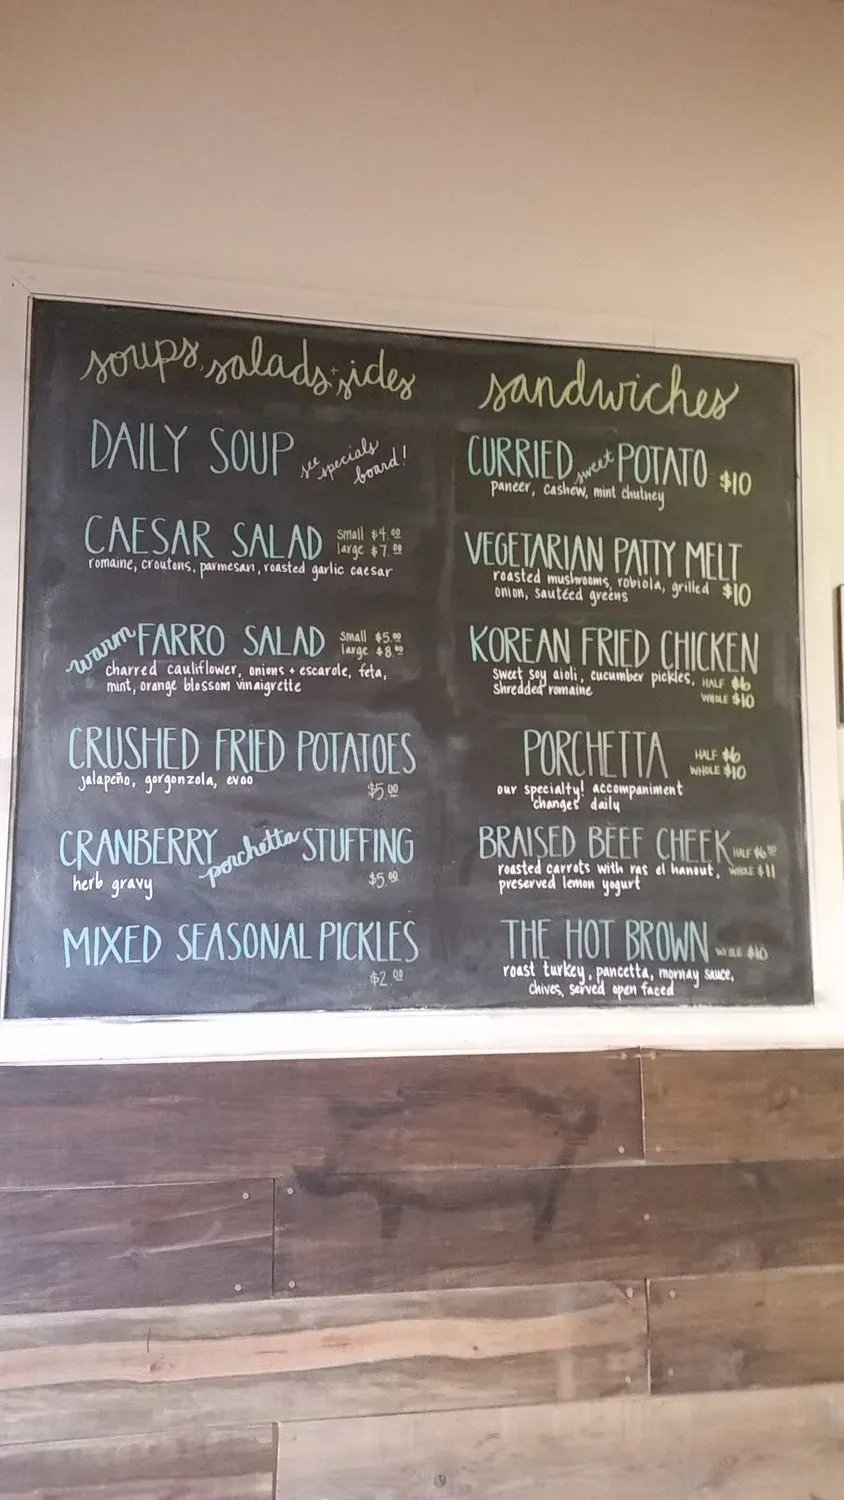 soups, salads + sides
DAILY SOUP see specials board!
CAESAR SALAD small $4.00
large $7.00
romaine, croutons, parmesan, roasted garlic caesar
warm FARRO SALAD small $5.00
large $8.00
charred cauliflower, onions + escarole, feta,
mint, orange blossom vinaigrette
CRUSHED FRIED POTATOES
jalapeño, gorgonzola, evoo
$5.00
CRANBERRY porchetta STUFFING
herb gravy $5.00
MIXED SEASONAL PICKLES
$2.00
sandwiches
CURRIED sweet POTATO $10
paneer, cashew, mint chutney
VEGETARIAN PATTY MELT
roasted mushrooms, robiola, grilled
onion, sautéed greens $10
KOREAN FRIED CHICKEN
sweet soy aioli, cucumber pickles, HALF $6
shredded romaine WHOLE $10
PORCHETTA HALF $6
WHOLE $10
our specialty! accompaniment
changes daily
BRAISED BEEF CHEEK HALF $6
roasted carrots with ras el hanout, WHOLE $11
preserved lemon yogurt
THE HOT BROWN WHOLE $10
roast turkey, pancetta, mornay sauce,
chives, served open faced